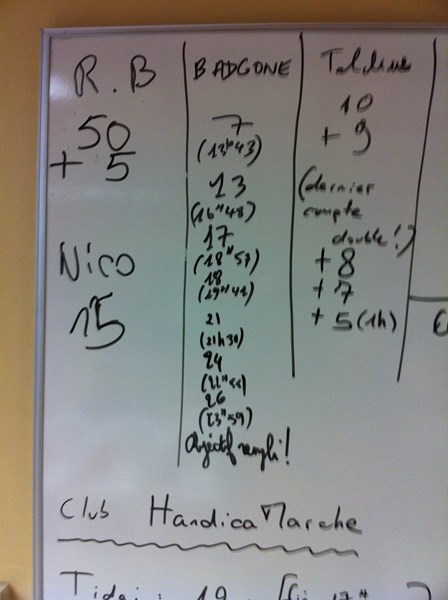 R.B
50
+ 5
Nico
15
BADGONE
7
(13H43)
13
(16H48)
17
(18H57)
18
(19H41)
21
(21h30)
24
26
(23H59)
Objectif rempli!
10
+ 9
(dernier
compte
double!)
+ 8
+ 7
+ 5 (1h)
Club HandicaMarche
19